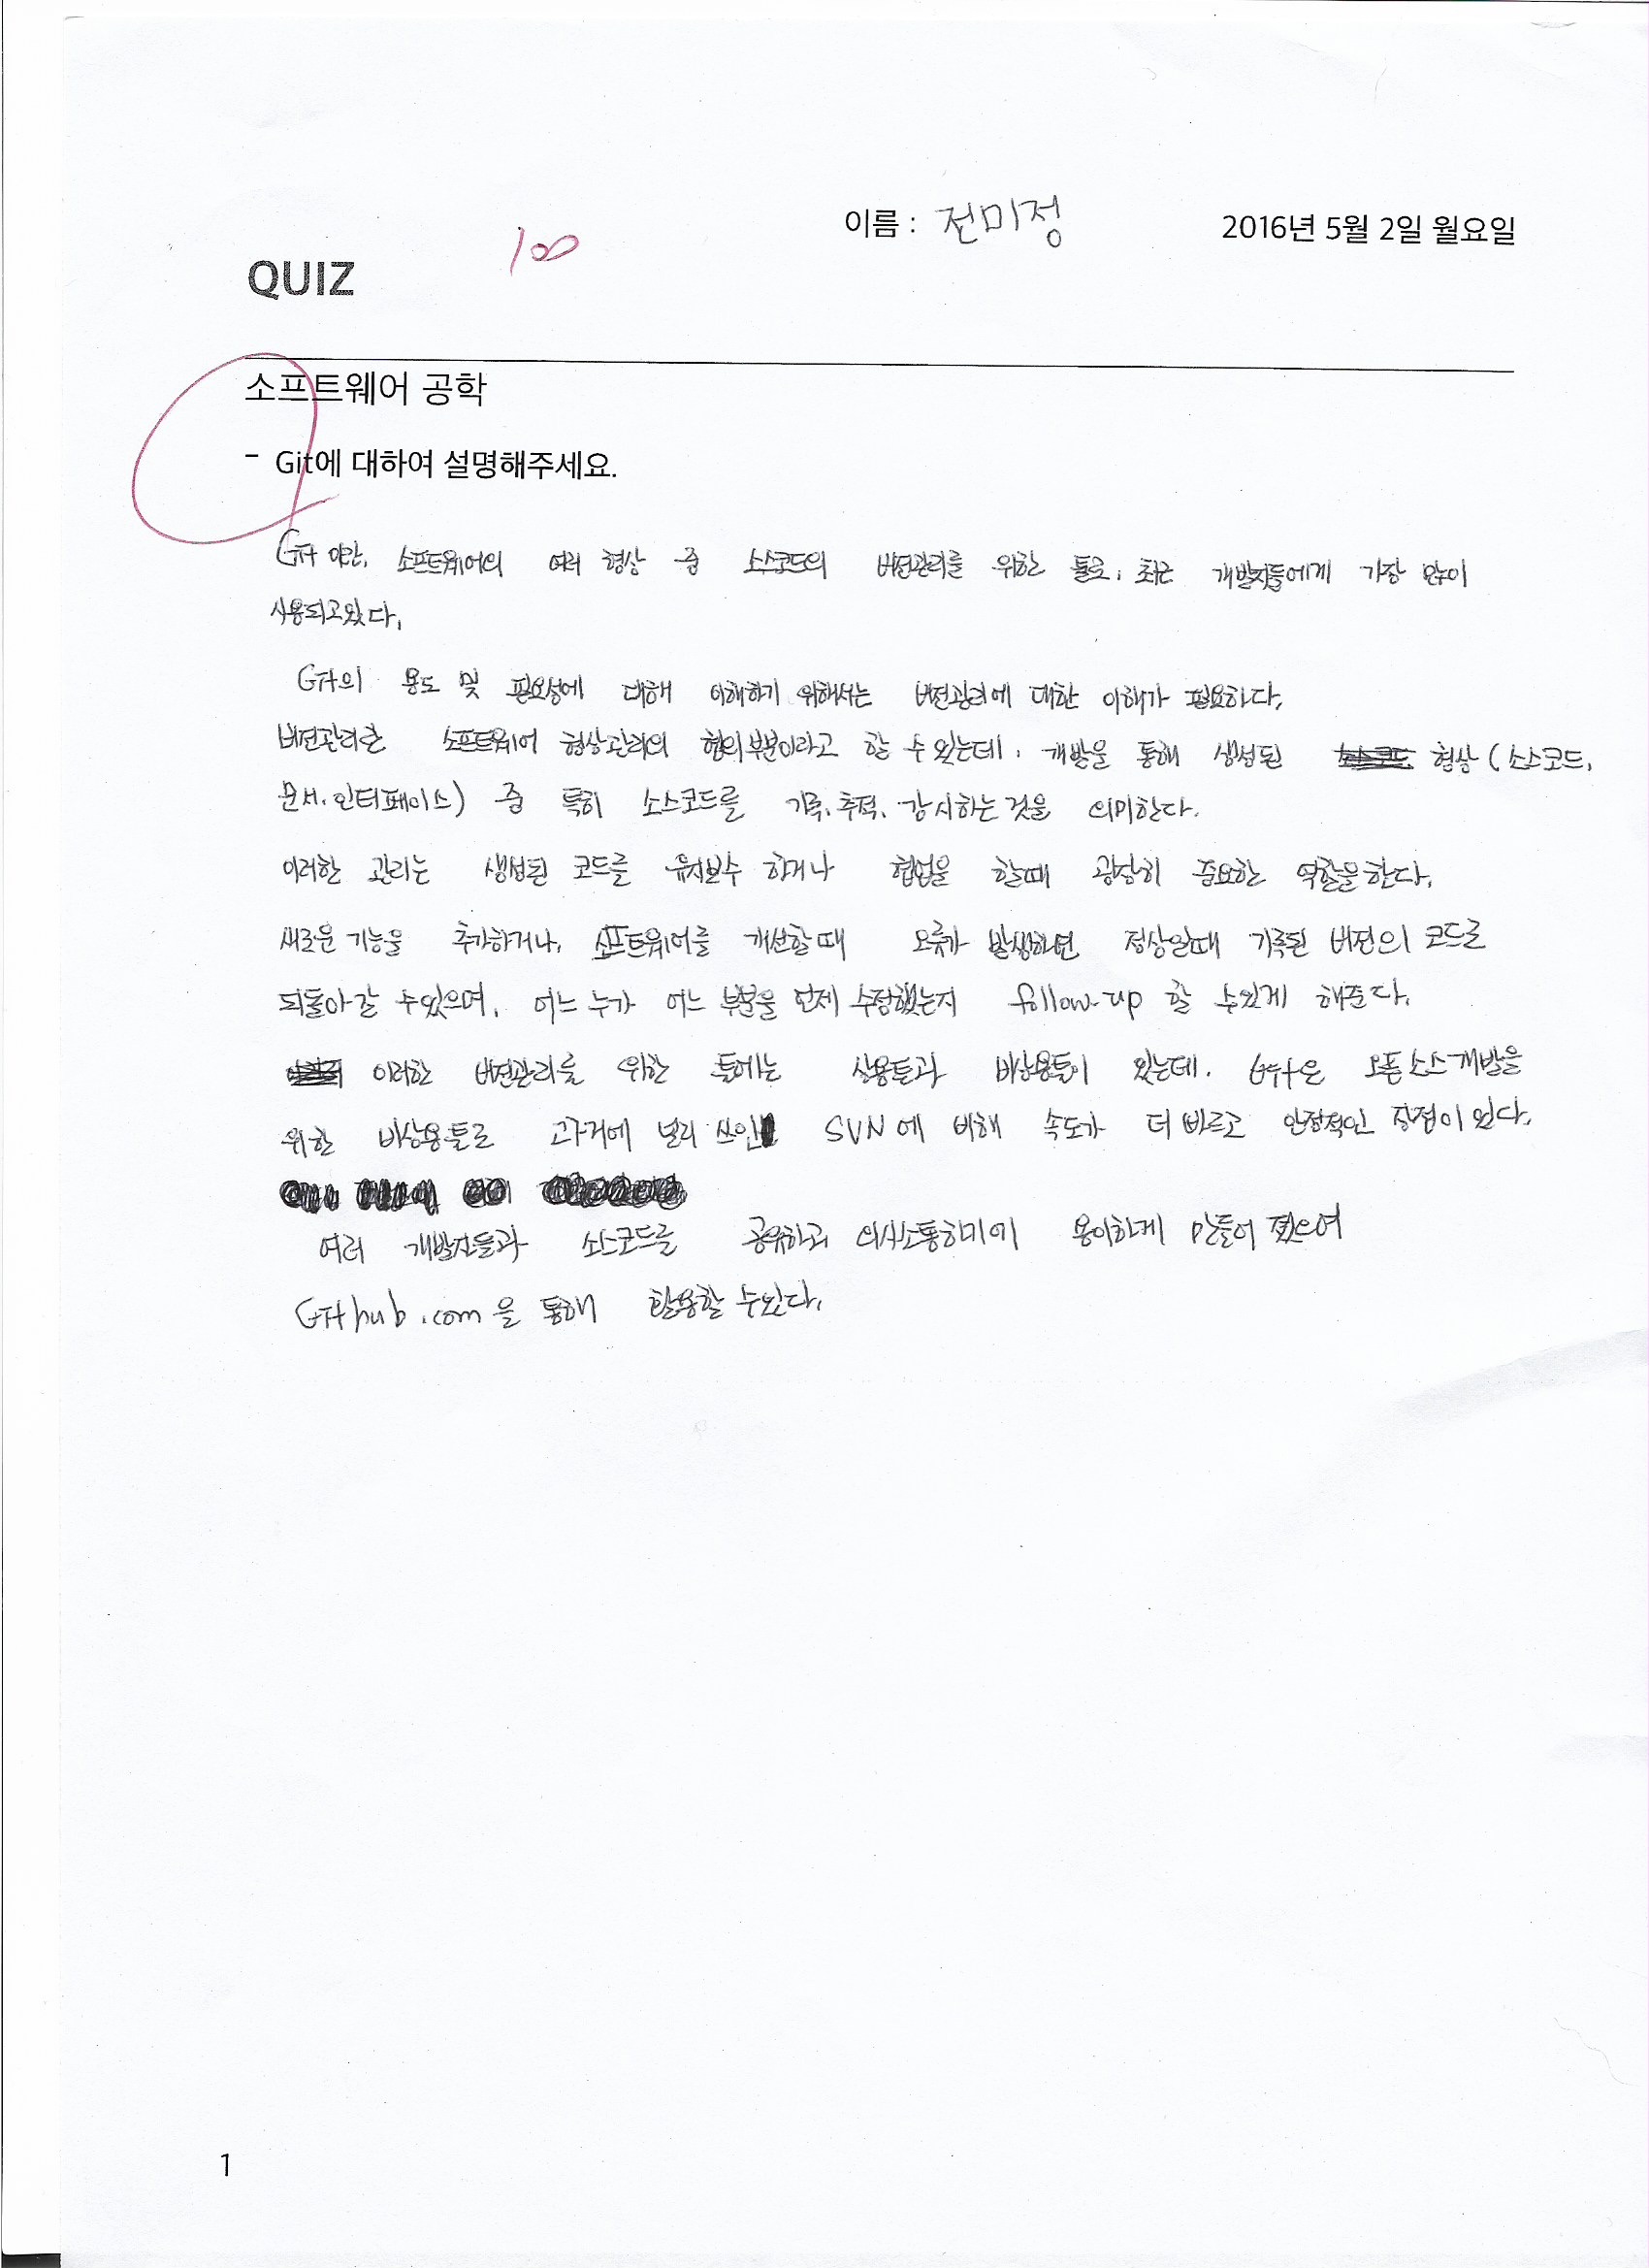 이름 : 전미정
2016년 5월 2일 월요일
100
QUIZ
소프트웨어 공학
- Git에 대하여 설명해주세요.
Git 이란, 소프트웨어의 여러 형상 중 소스코드의 버전관리를 위한 툴로, 최근 개발자들에게 가장 많이
사용되고있다.
Git의 용도 및 필요성에 대해 이해하기 위해서는 버전관리에 대한 이해가 필요하다.
버전관리란 소프트웨어 형상관리의 협의부분이라고 할 수 있는데, 개발을 통해 생성된 형상 (소스코드,
문서, 인터페이스) 중 특히 소스코드를 기록, 추적, 감시하는 것을 의미한다.
이러한 관리는 생성된 코드를 유지보수 하거나 협업을 할때 굉장히 중요한 역할을한다.
새로운 기능을 추가하거나, 소프트웨어를 개선할 때 오류가 발생하면 정상일때 기록된 버전의 코드로
되돌아갈 수있으며, 어느 누가 어느 부분을 언제 수정했는지 follow-up 할 수있게 해준다.
이러한 버전관리를 위한 툴에는 상용툴과 비상용툴이 있는데, Git은 오픈소스개발을
위한 비상용툴로 과거에 널리 쓰인 SVN에 비해 속도가 더 빠르고 안정적인 장점이 있다.
여러 개발자들과 소스코드를 공유하고 의사소통하기에 용이하게 만들어 졌으며
Github.com을 통해 활용할 수있다.
1